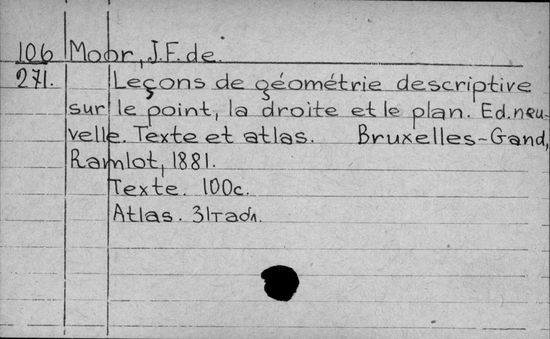 106 Moor, J.F. de.
271. Leçons de géométrie descriptive
sur le point, la droite et le plan. Ed. neu-
velle. Texte et atlas. Bruxelles-Gand,
Ramlot, 1881.
Texte. 100c.
Atlas. 31табл.